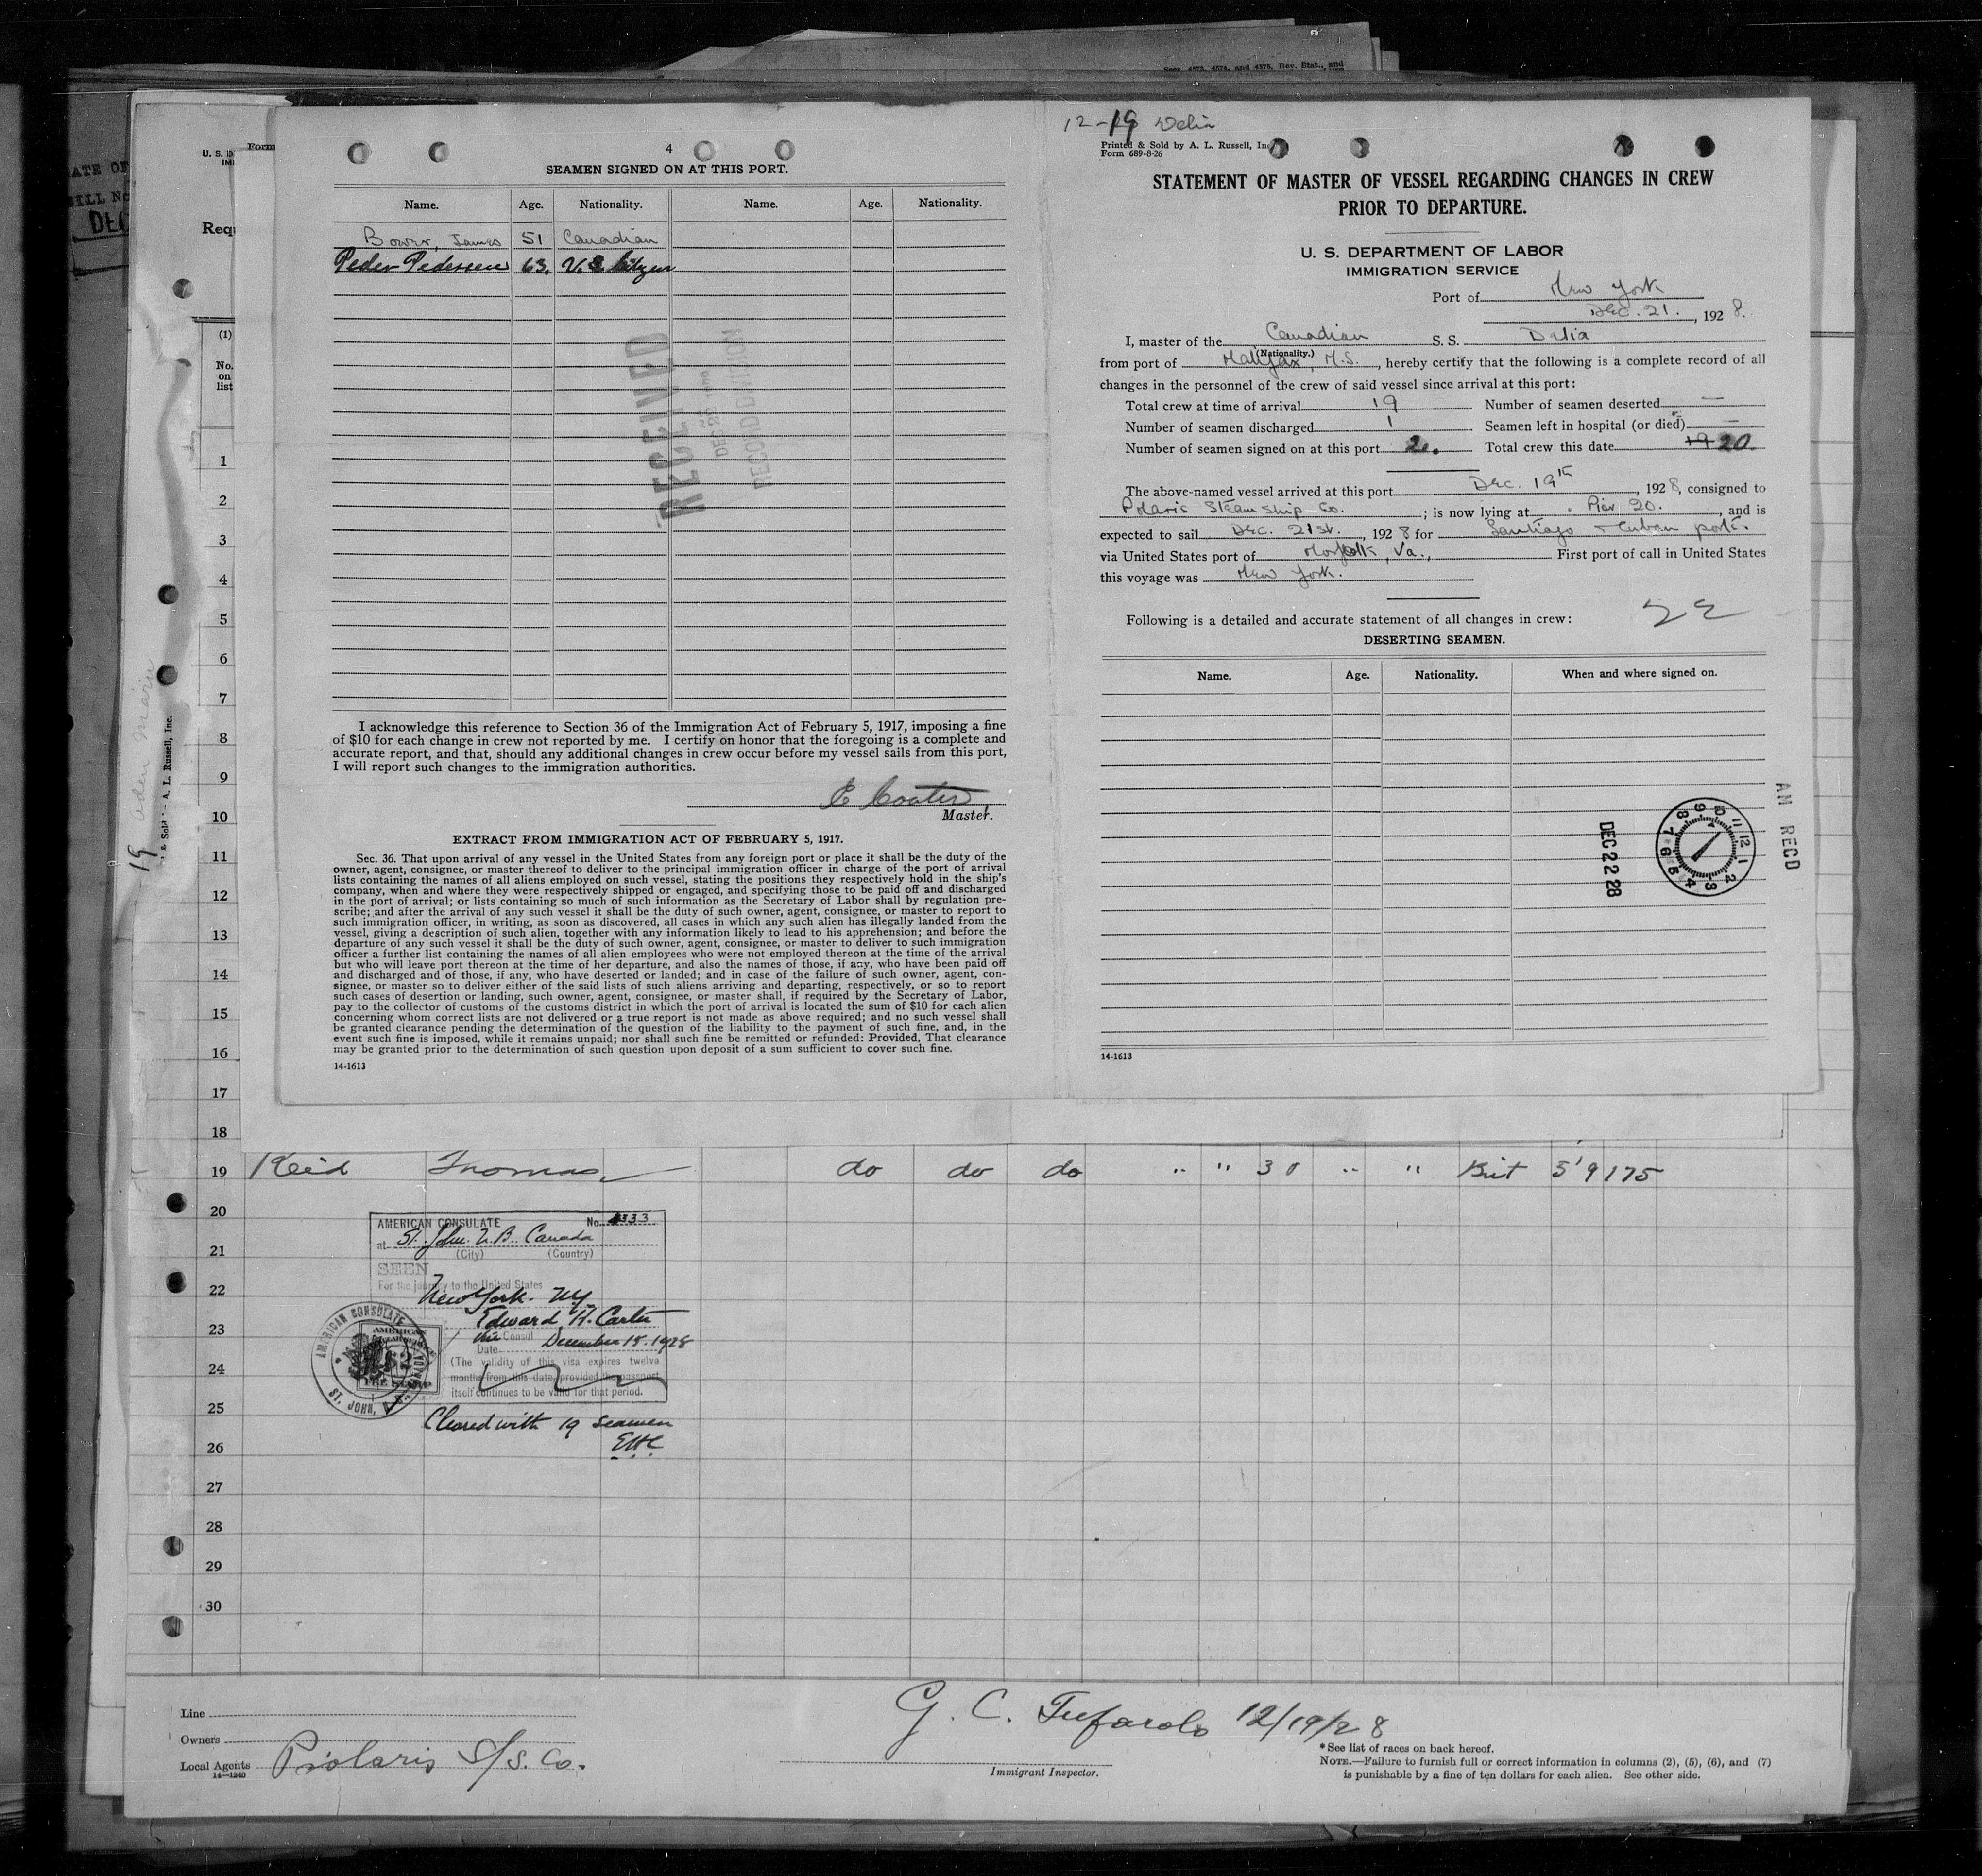 Secs. 4573, 4574, and 4575, Rev. Stat., and
ATE OF
BILL No
DEC
U. S. D
IMM
Form
Requ
(1)
No.
on
list
4
SEAMEN SIGNED ON AT THIS PORT.
Name. Age. Nationality. Name. Age. Nationality.
Bower, James 51 Canadian
Peder Pedersen 63. U.S. Citizen
RECEIVED
RECORD DIVISION
I acknowledge this reference to Section 36 of the Immigration Act of February 5, 1917, imposing a fine
of $10 for each change in crew not reported by me. I certify on honor that the foregoing is a complete and
accurate report, and that, should any additional changes in crew occur before my vessel sails from this port,
I will report such changes to the immigration authorities.
E Coates
Master.
EXTRACT FROM IMMIGRATION ACT OF FEBRUARY 5, 1917.
Sec. 36. That upon arrival of any vessel in the United States from any foreign port or place it shall be the duty of the
owner, agent, consignee, or master thereof to deliver to the principal immigration officer in charge of the port of arrival
lists containing the names of all aliens employed on such vessel, stating the positions they respectively hold in the ship's
company, when and where they were respectively shipped or engaged, and specifying those to be paid off and discharged
in the port of arrival; or lists containing so much of such information as the Secretary of Labor shall by regulation pre-
scribe; and after the arrival of any such vessel it shall be the duty of such owner, agent, consignee, or master to report to
such immigration officer, in writing, as soon as discovered, all cases in which any such alien has illegally landed from the
vessel, giving a description of such alien, together with any information likely to lead to his apprehension; and before the
departure of any such vessel it shall be the duty of such owner, agent, consignee, or master to deliver to such immigration
officer a further list containing the names of all alien employees who were not employed thereon at the time of the arrival
but who will leave port thereon at the time of her departure, and also the names of those, if any, who have been paid off
and discharged and of those, if any, who have deserted or landed; and in case of the failure of such owner, agent, con-
signee, or master so to deliver either of the said lists of such aliens arriving and departing, respectively, or so to report
such cases of desertion or landing, such owner, agent, consignee, or master shall, if required by the Secretary of Labor,
pay to the collector of customs of the customs district in which the port of arrival is located the sum of $10 for each alien
concerning whom correct lists are not delivered or a true report is not made as above required; and no such vessel shall
be granted clearance pending the determination of the question of the liability to the payment of such fine, and, in the
event such fine is imposed, while it remains unpaid; nor shall such fine be remitted or refunded: Provided, That clearance
may be granted prior to the determination of such question upon deposit of a sum sufficient to cover such fine.
14-1613
12-19 Delia
Printed & Sold by A. L. Russell, Inc
Form 689-8-26
STATEMENT OF MASTER OF VESSEL REGARDING CHANGES IN CREW
PRIOR TO DEPARTURE.
U. S. DEPARTMENT OF LABOR
IMMIGRATION SERVICE
Port of New York
Dec. 21., 1928.
I, master of the Canadian S. S. Dalia
(Nationality.)
from port of Halifax, N.S., hereby certify that the following is a complete record of all
changes in the personnel of the crew of said vessel since arrival at this port:
Total crew at time of arrival 19 Number of seamen deserted —
Number of seamen discharged 1 Seamen left in hospital (or died) —
Number of seamen signed on at this port 2. Total crew this date 19 20.
The above-named vessel arrived at this port Dec. 19th, 1928, consigned to
Polaris Steamship Co.; is now lying at Pier 20., and is
expected to sail Dec. 21st., 1928 for Santiago + Cuban ports.
via United States port of Norfolk, Va., First port of call in United States
this voyage was New York.
Following is a detailed and accurate statement of all changes in crew:
DESERTING SEAMEN.
Name. Age. Nationality. When and where signed on.
AM RECD
DEC 22 28
12 1 2 3 4 5 6 7 8 9 10 11
14-1613
1
2
3
4
5
6
7
8
9
10
11
12
13
14
15
16
17
18
& Sold - A. L. Russell, Inc.
19
19 Reid Thomas do do do " " 30 " " Brit 5'9 175
20
21
22
23
24
25
26
27
28
29
30
AMERICAN CONSULATE No. 4333
at St. John. N.B. Canada
(City) (Country)
SEEN
For the journey to the United States
New York. NY
Edward H. Carter
Vice Consul
Date December 15. 1928
(The validity of this visa expires twelve
months from this date, provided the passport
itself continues to be valid for that period.
AMERICAN CONSULATE
ST. JOHN,
AMERICAN
$2
FEE STAMP
Cleared with 19 seamen
EHC
Line
Owners
Local Agents Polaris S/S. Co.
14-1240
G. C. Tufarolo 12/19/28
Immigrant Inspector.
*See list of races on back hereof.
NOTE.—Failure to furnish full or correct information in columns (2), (5), (6), and (7)
is punishable by a fine of ten dollars for each alien. See other side.